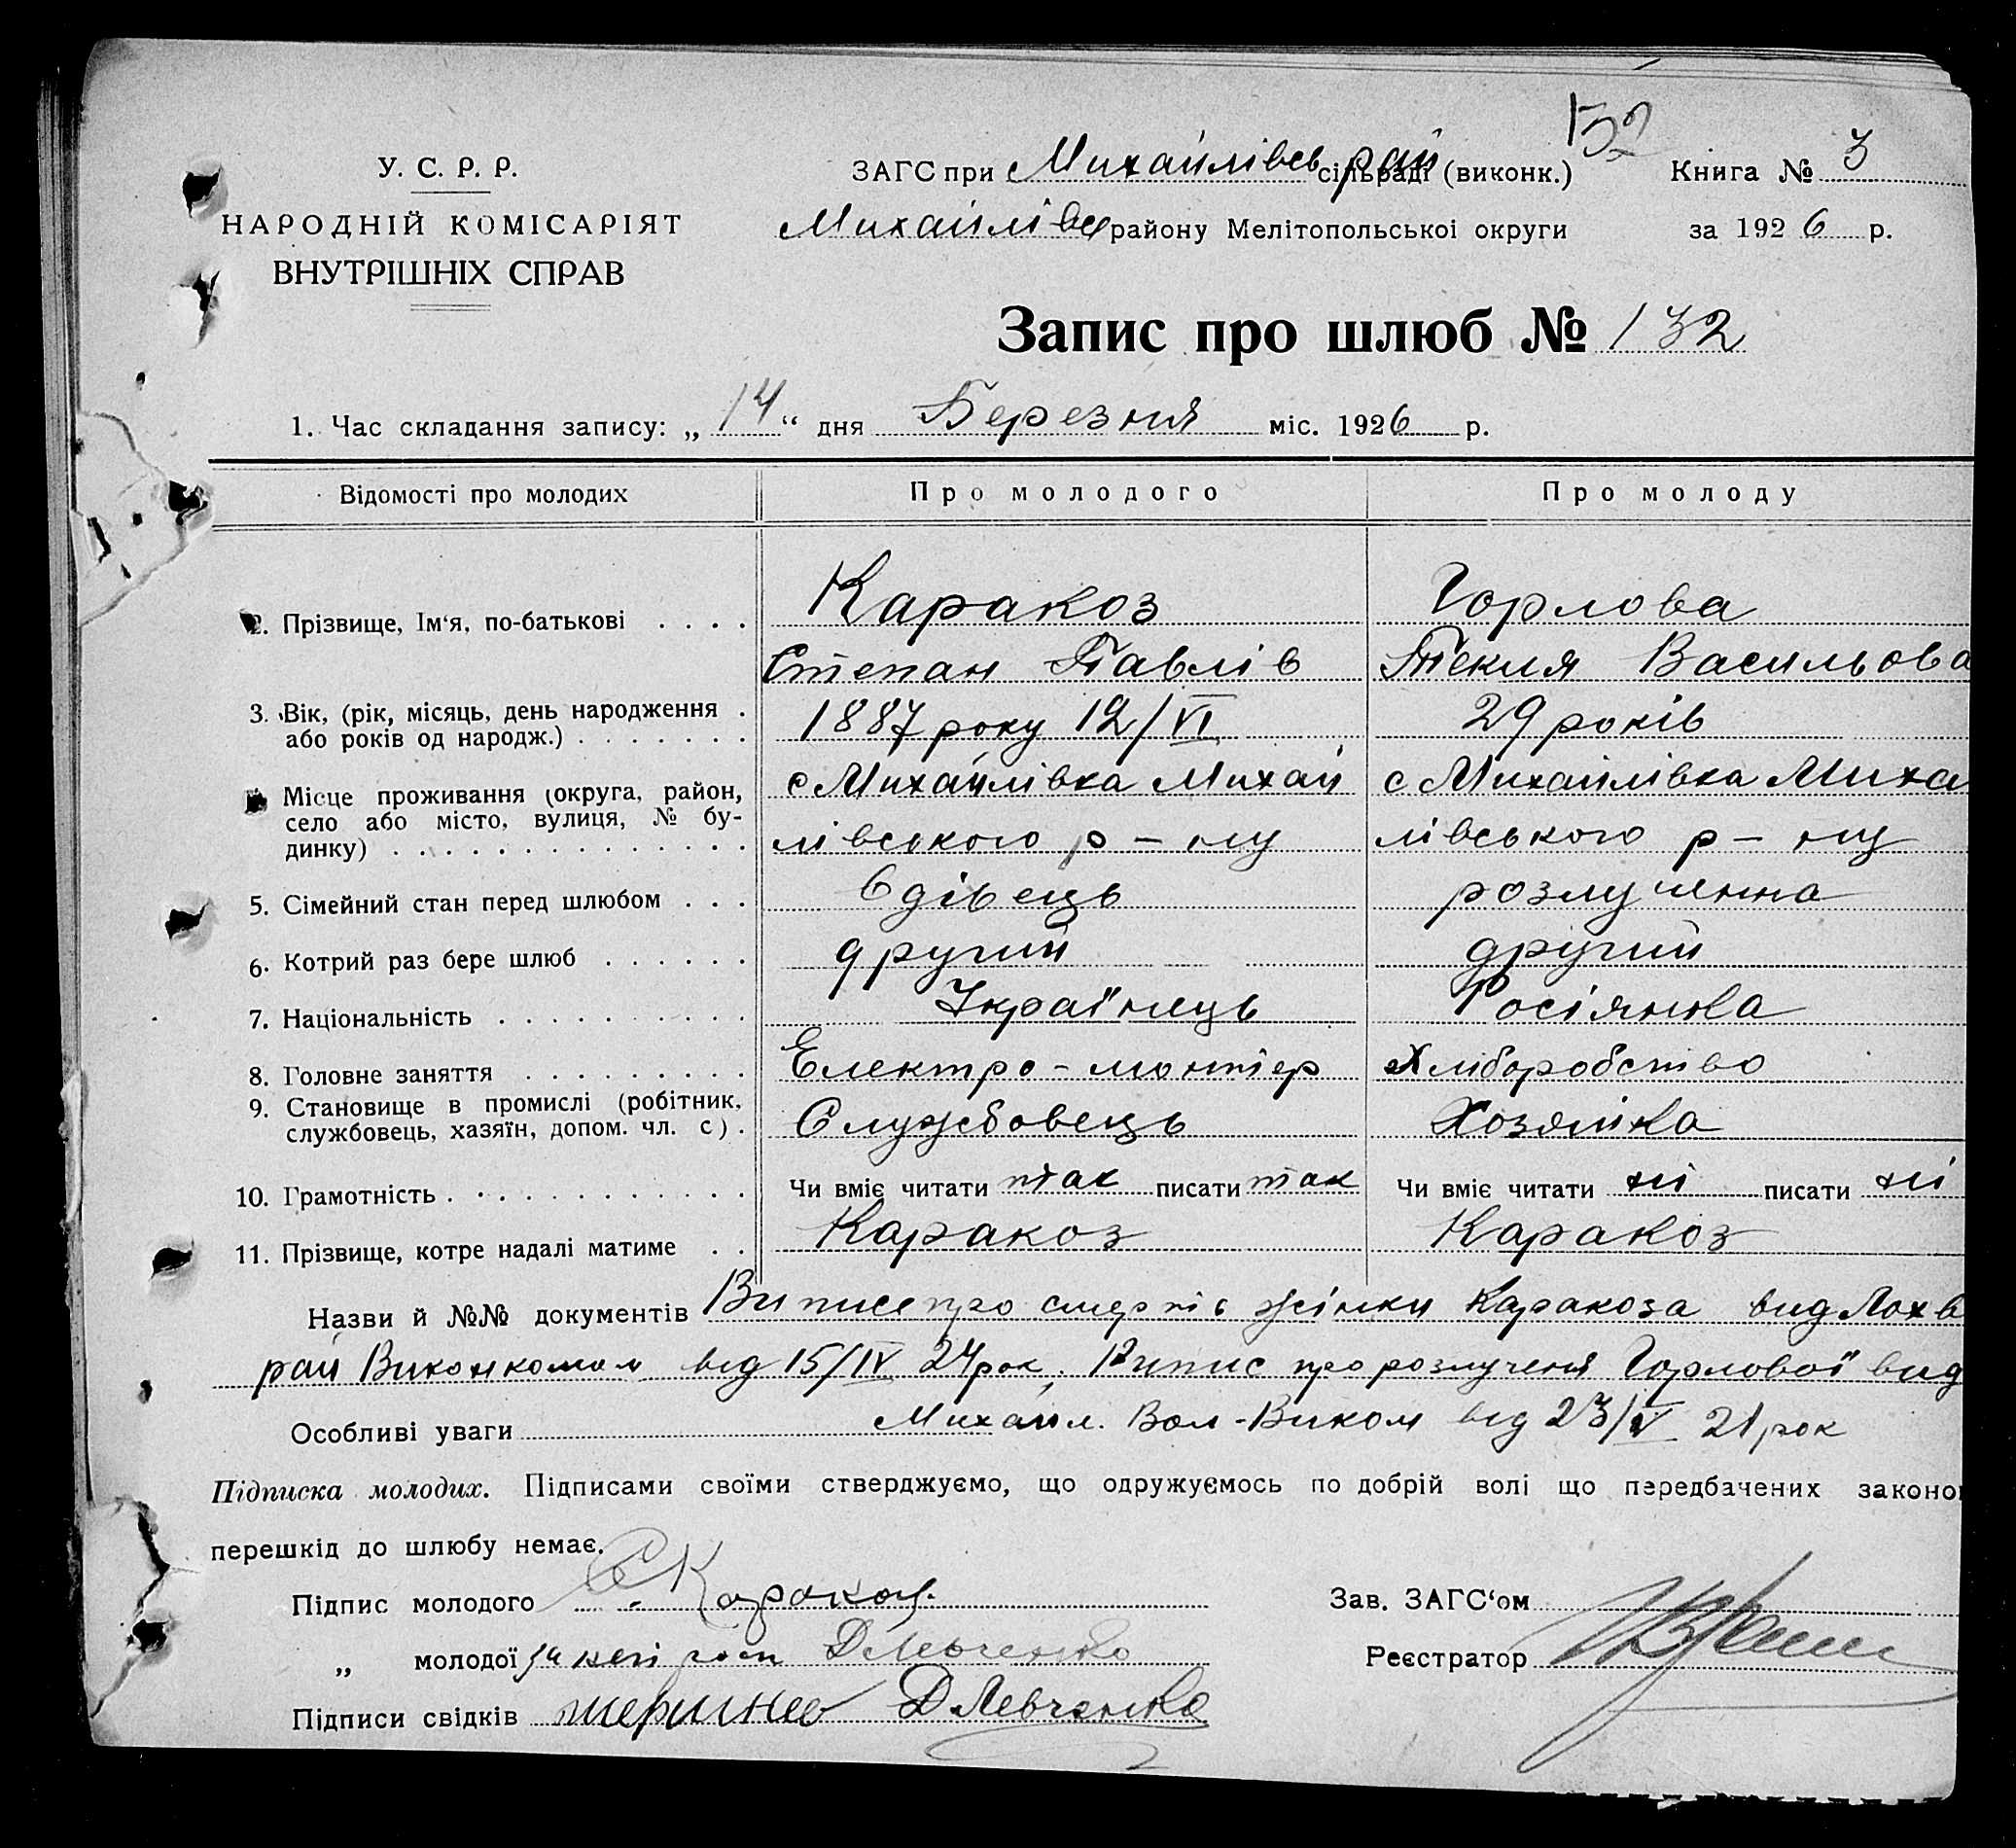 152
У. С. Р. Р.
НАРОДНІЙ КОМІСАРІЯТ
ВНУТРІШНІХ СПРАВ
ЗАГС при Михайлівсь рай сільраді (виконк.) Книга № 3
Михайлівсь району Мелітопольскої округи за 1926 р.
Запис про шлюб № 132
1. Час складання запису: „14“ дня Березня міс. 1926 р.
Відомості про молодих Про молодого Про молоду
2. Прізвище, Ім‘я, по-батькові Каракоз Горлова
Степан Павлів Текля Васильова
3. Вік, (рік, місяць, день народження 1887 року 12/VI 29 років
або років од народж.)
Місце проживання (округа, район, с Михайлівка Михай с Михайлівка Миха
село або місто, вулиця, № бу-
динку) лівського р-ну лівського р-ну
5. Сімейний стан перед шлюбом вдівець розлученна
6. Котрий раз бере шлюб другий другий
7. Національність Українець Росіянка
8. Головне заняття Електро-монтер Хліборобство
9. Становище в промислі (робітник,
службовець, хазяїн, допом. чл. с). Службовець Хозяйка
10. Грамотність Чи вміє читати так писати так Чи вміє читати ні писати ні
11. Прізвище, котре надалі матиме Каракоз Каракоз
Назви й №№ документів Виписе про смерть жінки Каракоза вид Лохв
рай Виконкомом від 15/IV 24 рок, Випис про розлученя Горлової вид
Особливі уваги Михайл. Вол-Виком від 23/V 21 рок
Підписка молодих. Підписами своїми стверджуємо, що одружуємось по добрій волі що передбачених законо
перешкід до шлюбу немає.
Підпис молодого С Каракоз Зав. ЗАГС‘ом
„ молодої ДЛевченко Реєстратор
Підписи свідків ДЛевченко